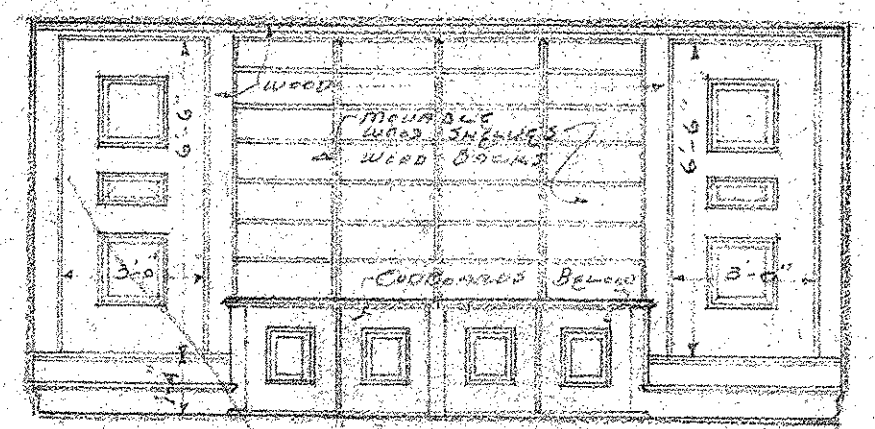 WOOD
6'-6"
MOVABLE
WOOD SHELVES
WOOD BACKS
6'-6"
3'-0"
CUPBOARDS BELOW
3-0"